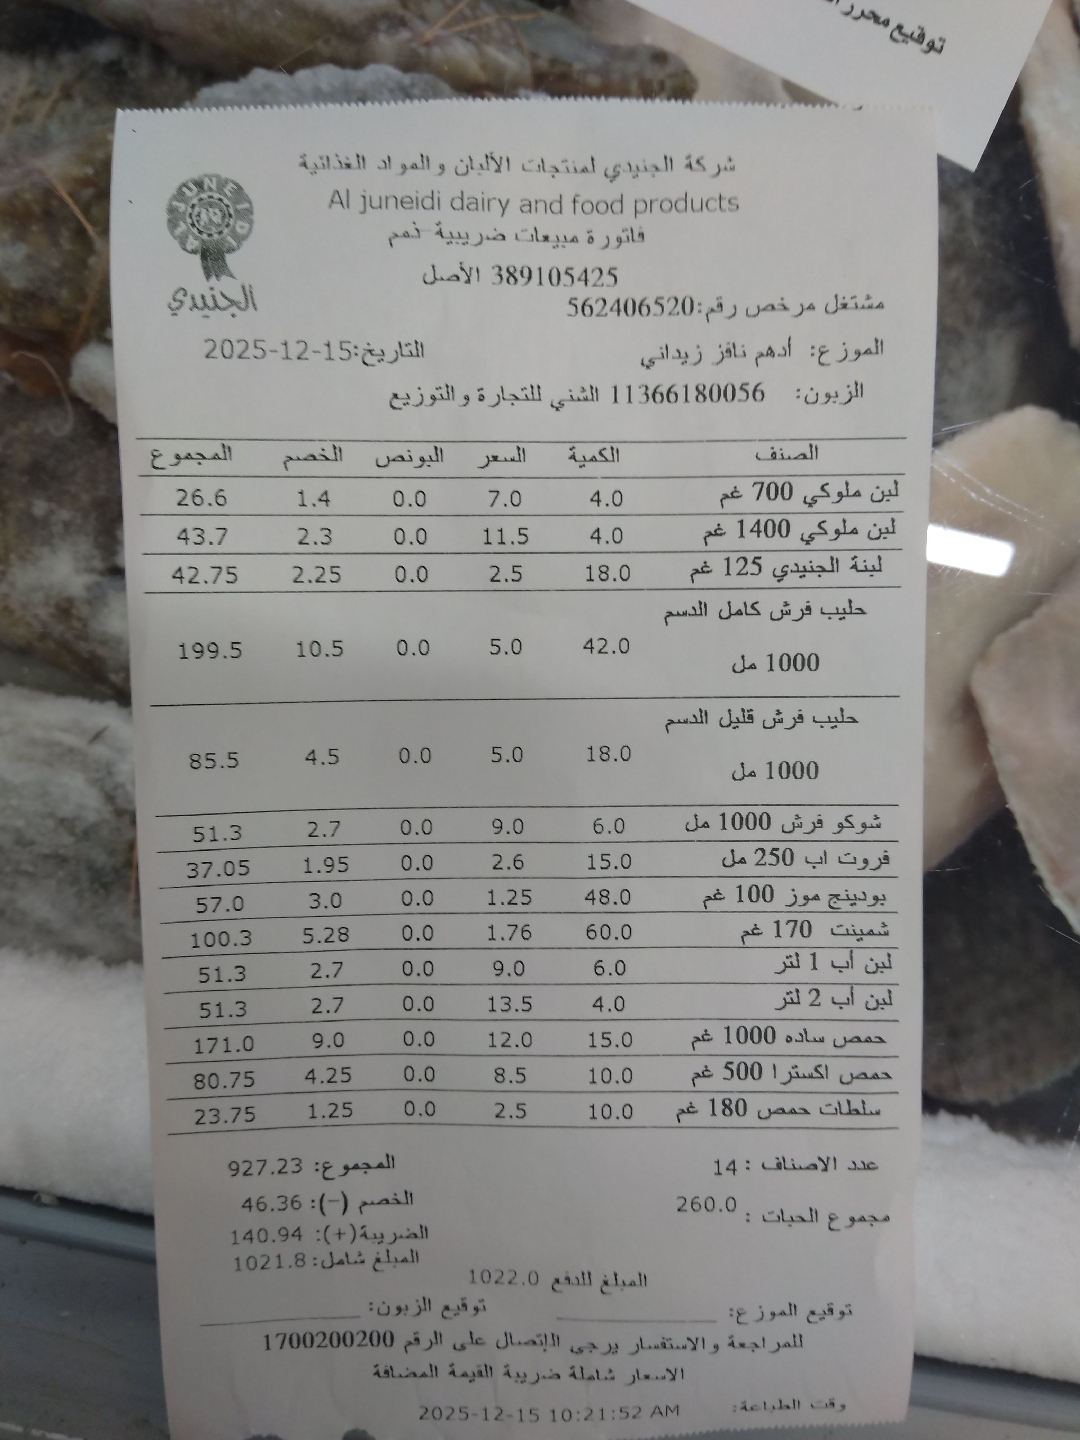 توقيع محرر
شركة الجنيدي لمنتجات الألبان والمواد الغذائية
AL JUNEIDI
الجنيدي
Al juneidi dairy and food products
فاتورة مبيعات ضريبية-ذمم
389105425 الأصل
مشتغل مرخص رقم:562406520
الموزع: أدهم نافز زيداني التاريخ:15-12-2025
الزبون: 11366180056 الشني للتجارة والتوزيع
الصنف الكمية السعر البونص الخصم المجموع
لبن ملوكي 700 غم 4.0 7.0 0.0 1.4 26.6
لبن ملوكي 1400 غم 4.0 11.5 0.0 2.3 43.7
لبنة الجنيدي 125 غم 18.0 2.5 0.0 2.25 42.75
حليب فرش كامل الدسم
1000 مل 42.0 5.0 0.0 10.5 199.5
حليب فرش قليل الدسم
1000 مل 18.0 5.0 0.0 4.5 85.5
شوكو فرش 1000 مل 6.0 9.0 0.0 2.7 51.3
فروت اب 250 مل 15.0 2.6 0.0 1.95 37.05
بودينج موز 100 غم 48.0 1.25 0.0 3.0 57.0
شمينت 170 غم 60.0 1.76 0.0 5.28 100.3
لبن أب 1 لتر 6.0 9.0 0.0 2.7 51.3
لبن أب 2 لتر 4.0 13.5 0.0 2.7 51.3
حمص ساده 1000 غم 15.0 12.0 0.0 9.0 171.0
حمص اكسترا 500 غم 10.0 8.5 0.0 4.25 80.75
سلطات حمص 180 غم 10.0 2.5 0.0 1.25 23.75
عدد الاصناف : 14 المجموع: 927.23
الخصم (-): 46.36
مجموع الحبات : 260.0
الضريبة(+): 140.94
المبلغ شامل: 1021.8
المبلغ للدفع 1022.0
توقيع الموزع: ____________ توقيع الزبون: ____________
للمراجعة والاستفسار يرجى الإتصال على الرقم 1700200200
الاسعار شاملة ضريبة القيمة المضافة
وقت الطباعة: 2025-12-15 10:21:52 AM